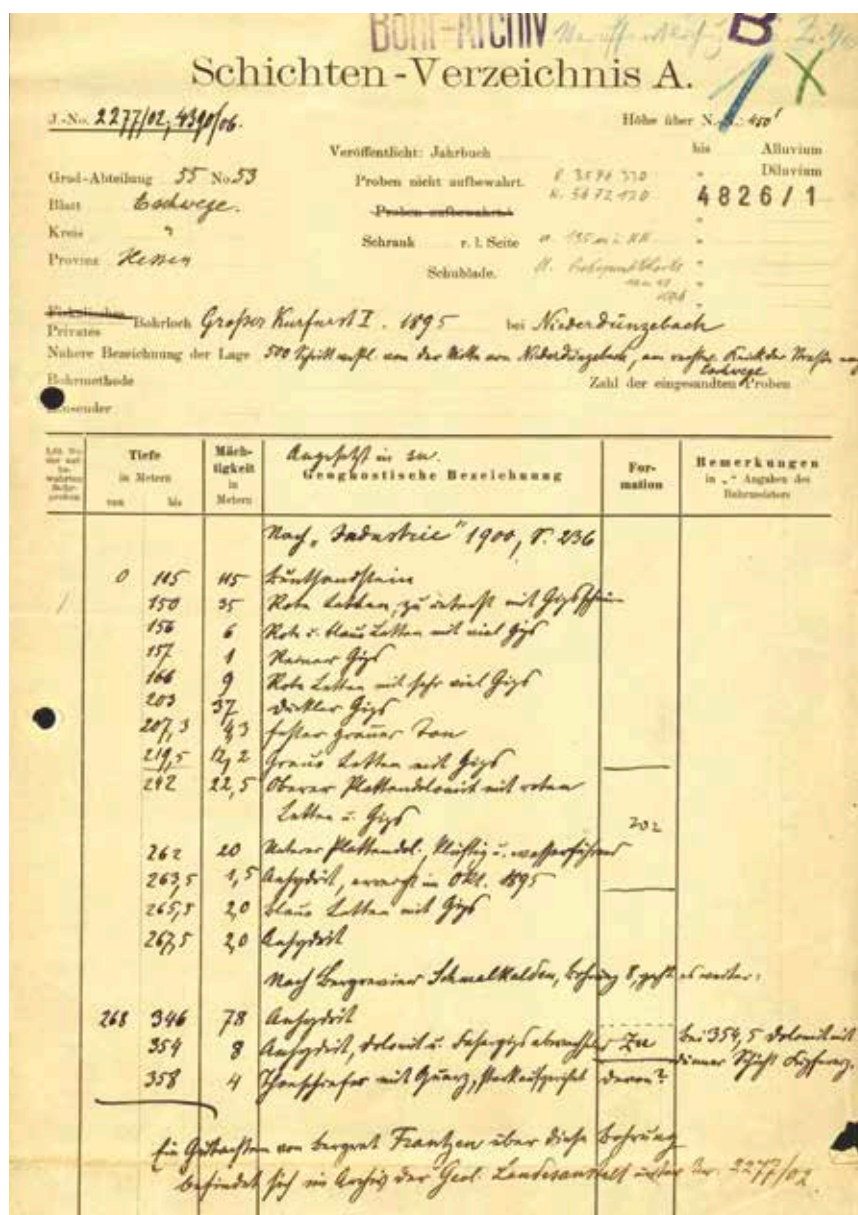 Bohr-Archiv B
Schichten-Verzeichnis A.
J.-No. 2277/02, 4390/06.
Höhe über N.-N.: 450'
Veröffentlicht: Jahrbuch
bis Alluvium
Grad-Abteilung 55 No 53
Proben nicht aufbewahrt.
" Diluvium
4826/1
Blatt Eschwege.
Proben aufbewahrt
Kreis "
Schrank r. l. Seite
Provinz Hessen
Schublade.
Fiskalisches
Privates Bohrloch Großer Kurfürst I. 1895 bei Niederdünzebach
Nähere Bezeichnung der Lage 500 Schritt von der Mitte von Niederdünzebach, am Knick der Straße nach
Eschwege
Bohrmethode
Zahl der eingesandten Proben
Einsender
Tiefe in Metern von bis
Mächtigkeit in Metern
Angesetzt in su.
Geognostische Bezeichnung
Formation
Bemerkungen in „" Angaben des Bohrmeisters
Nach „Industrie" 1900, S. 236
0 115 115 Buntsandstein
150 35 Rote Letten, zu unterst mit Gips
156 6 Rote u. blaue Letten mit viel Gips
157 1 Reiner Gips
166 9 Rote Letten mit sehr viel Gips
203 37 Dunkler Gips
207,3 4,3 fester grauer Ton
219,5 12,2 Graue Letten mit Gips
242 22,5 Oberer Plattendolomit mit roten
Letten u. Gips
zo2
262 20 Unterer Plattendol., klüftig u. wasserführend
263,5 1,5 Anhydrit, erreicht im Okt. 1895
265,5 2,0 blaue Letten mit Gips
267,5 2,0 Anhydrit
Nach Bergrevier Schmalkalden, Bohrung 8, geht es weiter:
268 346 78 Anhydrit
354 8 Anhydrit, Dolomit u. Fasergips abwechselnd Zu bei 354,5 Dolomit mit
dünner Schicht Kupfererz.
358 4 Thonschiefer mit Quarz, stark aufgerichtet Devon?
Ein Gutachten von Bergrat Frantzen über diese Bohrung
befindet sich im Archiv der Geol. Landesanstalt unter Nr. 2277/02